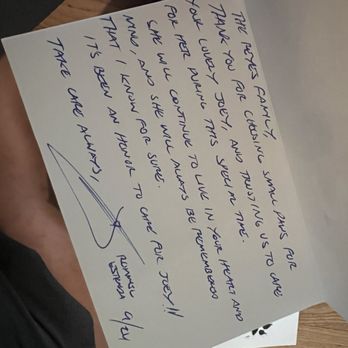 THE REYES FAMILY,
THANK YOU FOR CHOOSING SMALL PAWS FOR
YOUR LOVELY JOEY, AND TRUSTING US TO CARE
FOR HER DURING THIS SPECIAL TIME.
SHE WILL CONTINUE TO LIVE IN YOUR HEART AND
MIND, AND SHE WILL ALWAYS BE REMEMBERED
THAT I KNOW FOR SURE.
IT'S BEEN AN HONOR TO CARE FOR JOEY!!
TAKE CARE ALWAYS,
ESTRADA 9/24